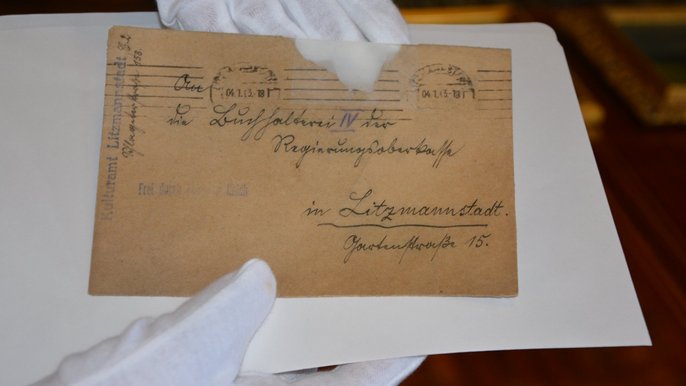 Kulturamt Litzmannstadt
04.1.43.-18
04.1.43.-18
An
die Buchhalterei IV der
Regierungsoberkasse
Frei durch Ablösung Reich
in Litzmannstadt.
Gartenstraße 15.